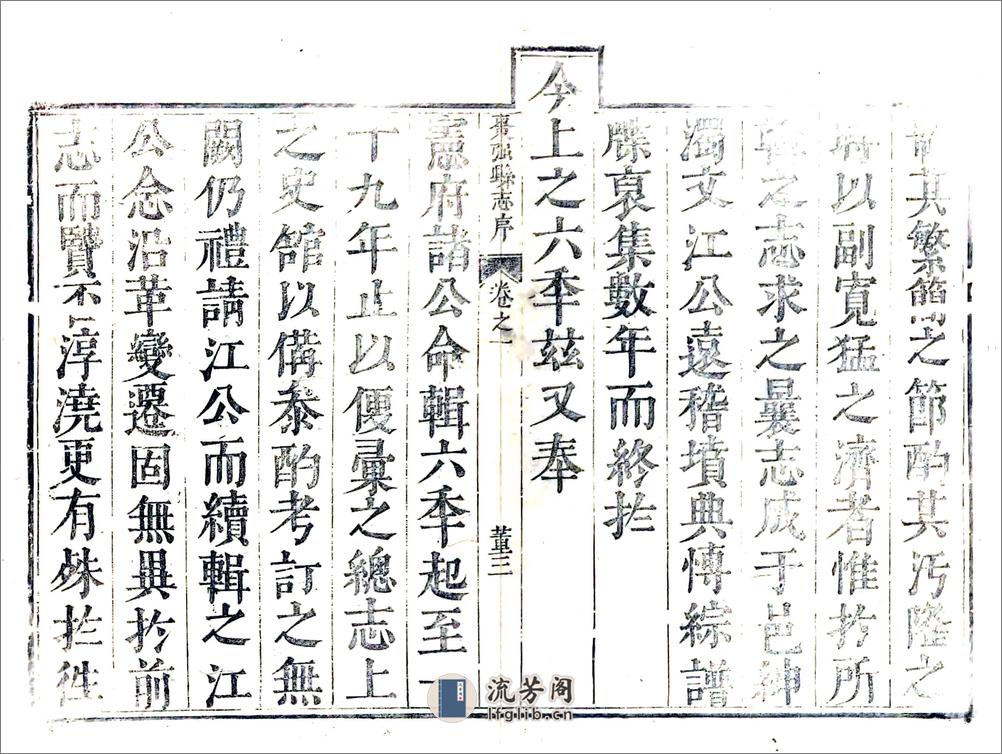 其繁簡之節酌其汚隆之
以副寬猛之濟者惟扵所
之志求之曩志成于邑紳
濁文江公遠稽墳典慱綜譜
牒裒集數年而終扵
今上之六季兹又奉
棗强縣志序 卷之一 董三
憲府諸公命輯六季起至一
十九年止以便彚之總志上
之史舘以備叅酌考訂之無
闕仍禮請江公而續輯之江
公念沿革變遷固無異扵前
志而賢不淳澆更有殊扵徃
流芳阁
lfglib.cn